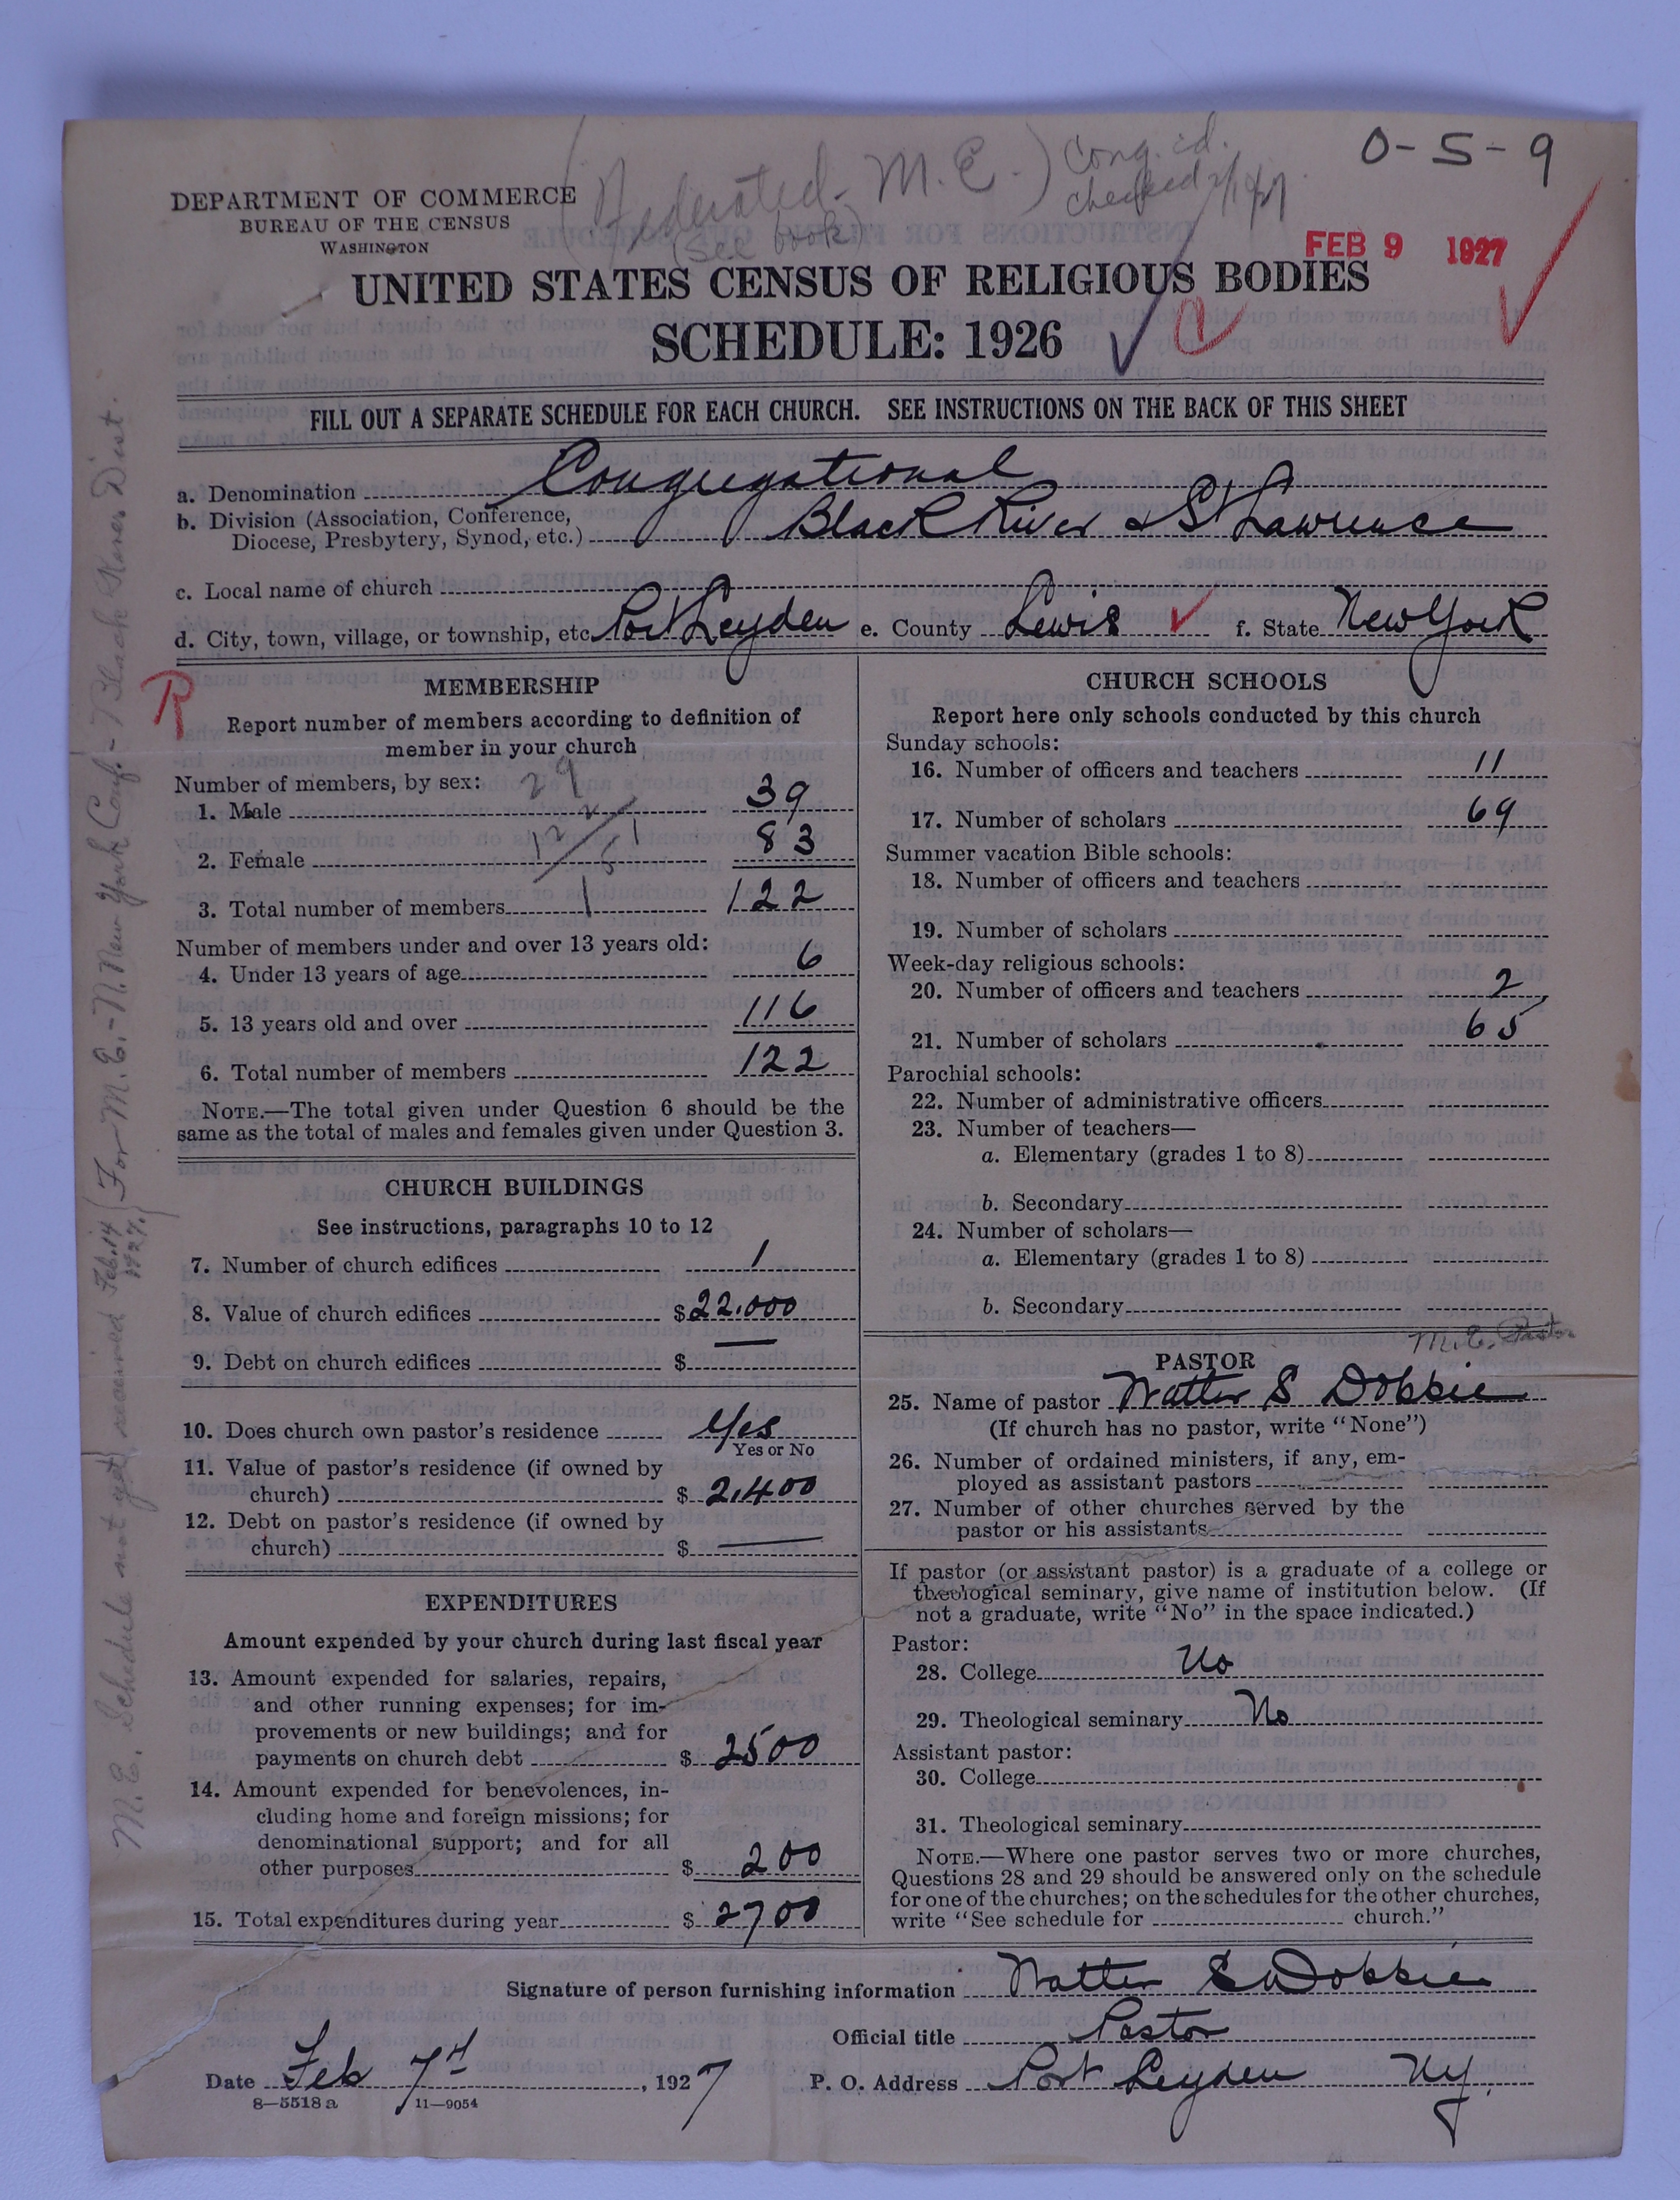 0-5-9
(Federated - M.E.) Cong. cd.
checked
(see book)
DEPARTMENT OF COMMERCE
BUREAU OF THE CENSUS
WASHINGTON
FEB 9 1927
UNITED STATES CENSUS OF RELIGIOUS BODIES
SCHEDULE: 1926
FILL OUT A SEPARATE SCHEDULE FOR EACH CHURCH. SEE INSTRUCTIONS ON THE BACK OF THIS SHEET
a. Denomination Congregational
b. Division (Association, Conference,
Diocese, Presbytery, Synod, etc.) Black River & St Lawrence
c. Local name of church
d. City, town, village, or township, etc. Port Leyden e. County Lewis f. State New York
R
MEMBERSHIP
Report number of members according to definition of
member in your church
Number of members, by sex: 29
1. Male 39
2. Female 83
3. Total number of members 122
Number of members under and over 13 years old:
4. Under 13 years of age 6
5. 13 years old and over 116
6. Total number of members 122
NOTE.—The total given under Question 6 should be the
same as the total of males and females given under Question 3.
CHURCH BUILDINGS
See instructions, paragraphs 10 to 12
7. Number of church edifices 1
8. Value of church edifices $22.000
9. Debt on church edifices $ —
10. Does church own pastor's residence Yes
Yes or No
11. Value of pastor's residence (if owned by
church) $ 2,400
12. Debt on pastor's residence (if owned by
church) $ —
EXPENDITURES
Amount expended by your church during last fiscal year
13. Amount expended for salaries, repairs,
and other running expenses; for im-
provements or new buildings; and for
payments on church debt $ 2500
14. Amount expended for benevolences, in-
cluding home and foreign missions; for
denominational support; and for all
other purposes $ 200
15. Total expenditures during year $ 2700
CHURCH SCHOOLS
Report here only schools conducted by this church
Sunday schools:
16. Number of officers and teachers 11
17. Number of scholars 69
Summer vacation Bible schools:
18. Number of officers and teachers
19. Number of scholars
Week-day religious schools:
20. Number of officers and teachers 2
21. Number of scholars 65
Parochial schools:
22. Number of administrative officers
23. Number of teachers—
a. Elementary (grades 1 to 8)
b. Secondary
24. Number of scholars—
a. Elementary (grades 1 to 8)
b. Secondary
M.E. Pastor
PASTOR
25. Name of pastor Walter S Dobbie
(If church has no pastor, write "None")
26. Number of ordained ministers, if any, em-
ployed as assistant pastors
27. Number of other churches served by the
pastor or his assistants
If pastor (or assistant pastor) is a graduate of a college or
theological seminary, give name of institution below. (If
not a graduate, write "No" in the space indicated.)
Pastor:
28. College No
29. Theological seminary No
Assistant pastor:
30. College
31. Theological seminary
NOTE.—Where one pastor serves two or more churches,
Questions 28 and 29 should be answered only on the schedule
for one of the churches; on the schedules for the other churches,
write "See schedule for church."
Signature of person furnishing information Walter S Dobbie
Official title Pastor
Date Feb 7th, 1927 P. O. Address Port Leyden N.Y.
8—5518a 11—9054
M.E. Schedule not yet received Feb. 14 1927. (For M.E. - N. New York Conf. - Black River Dist.